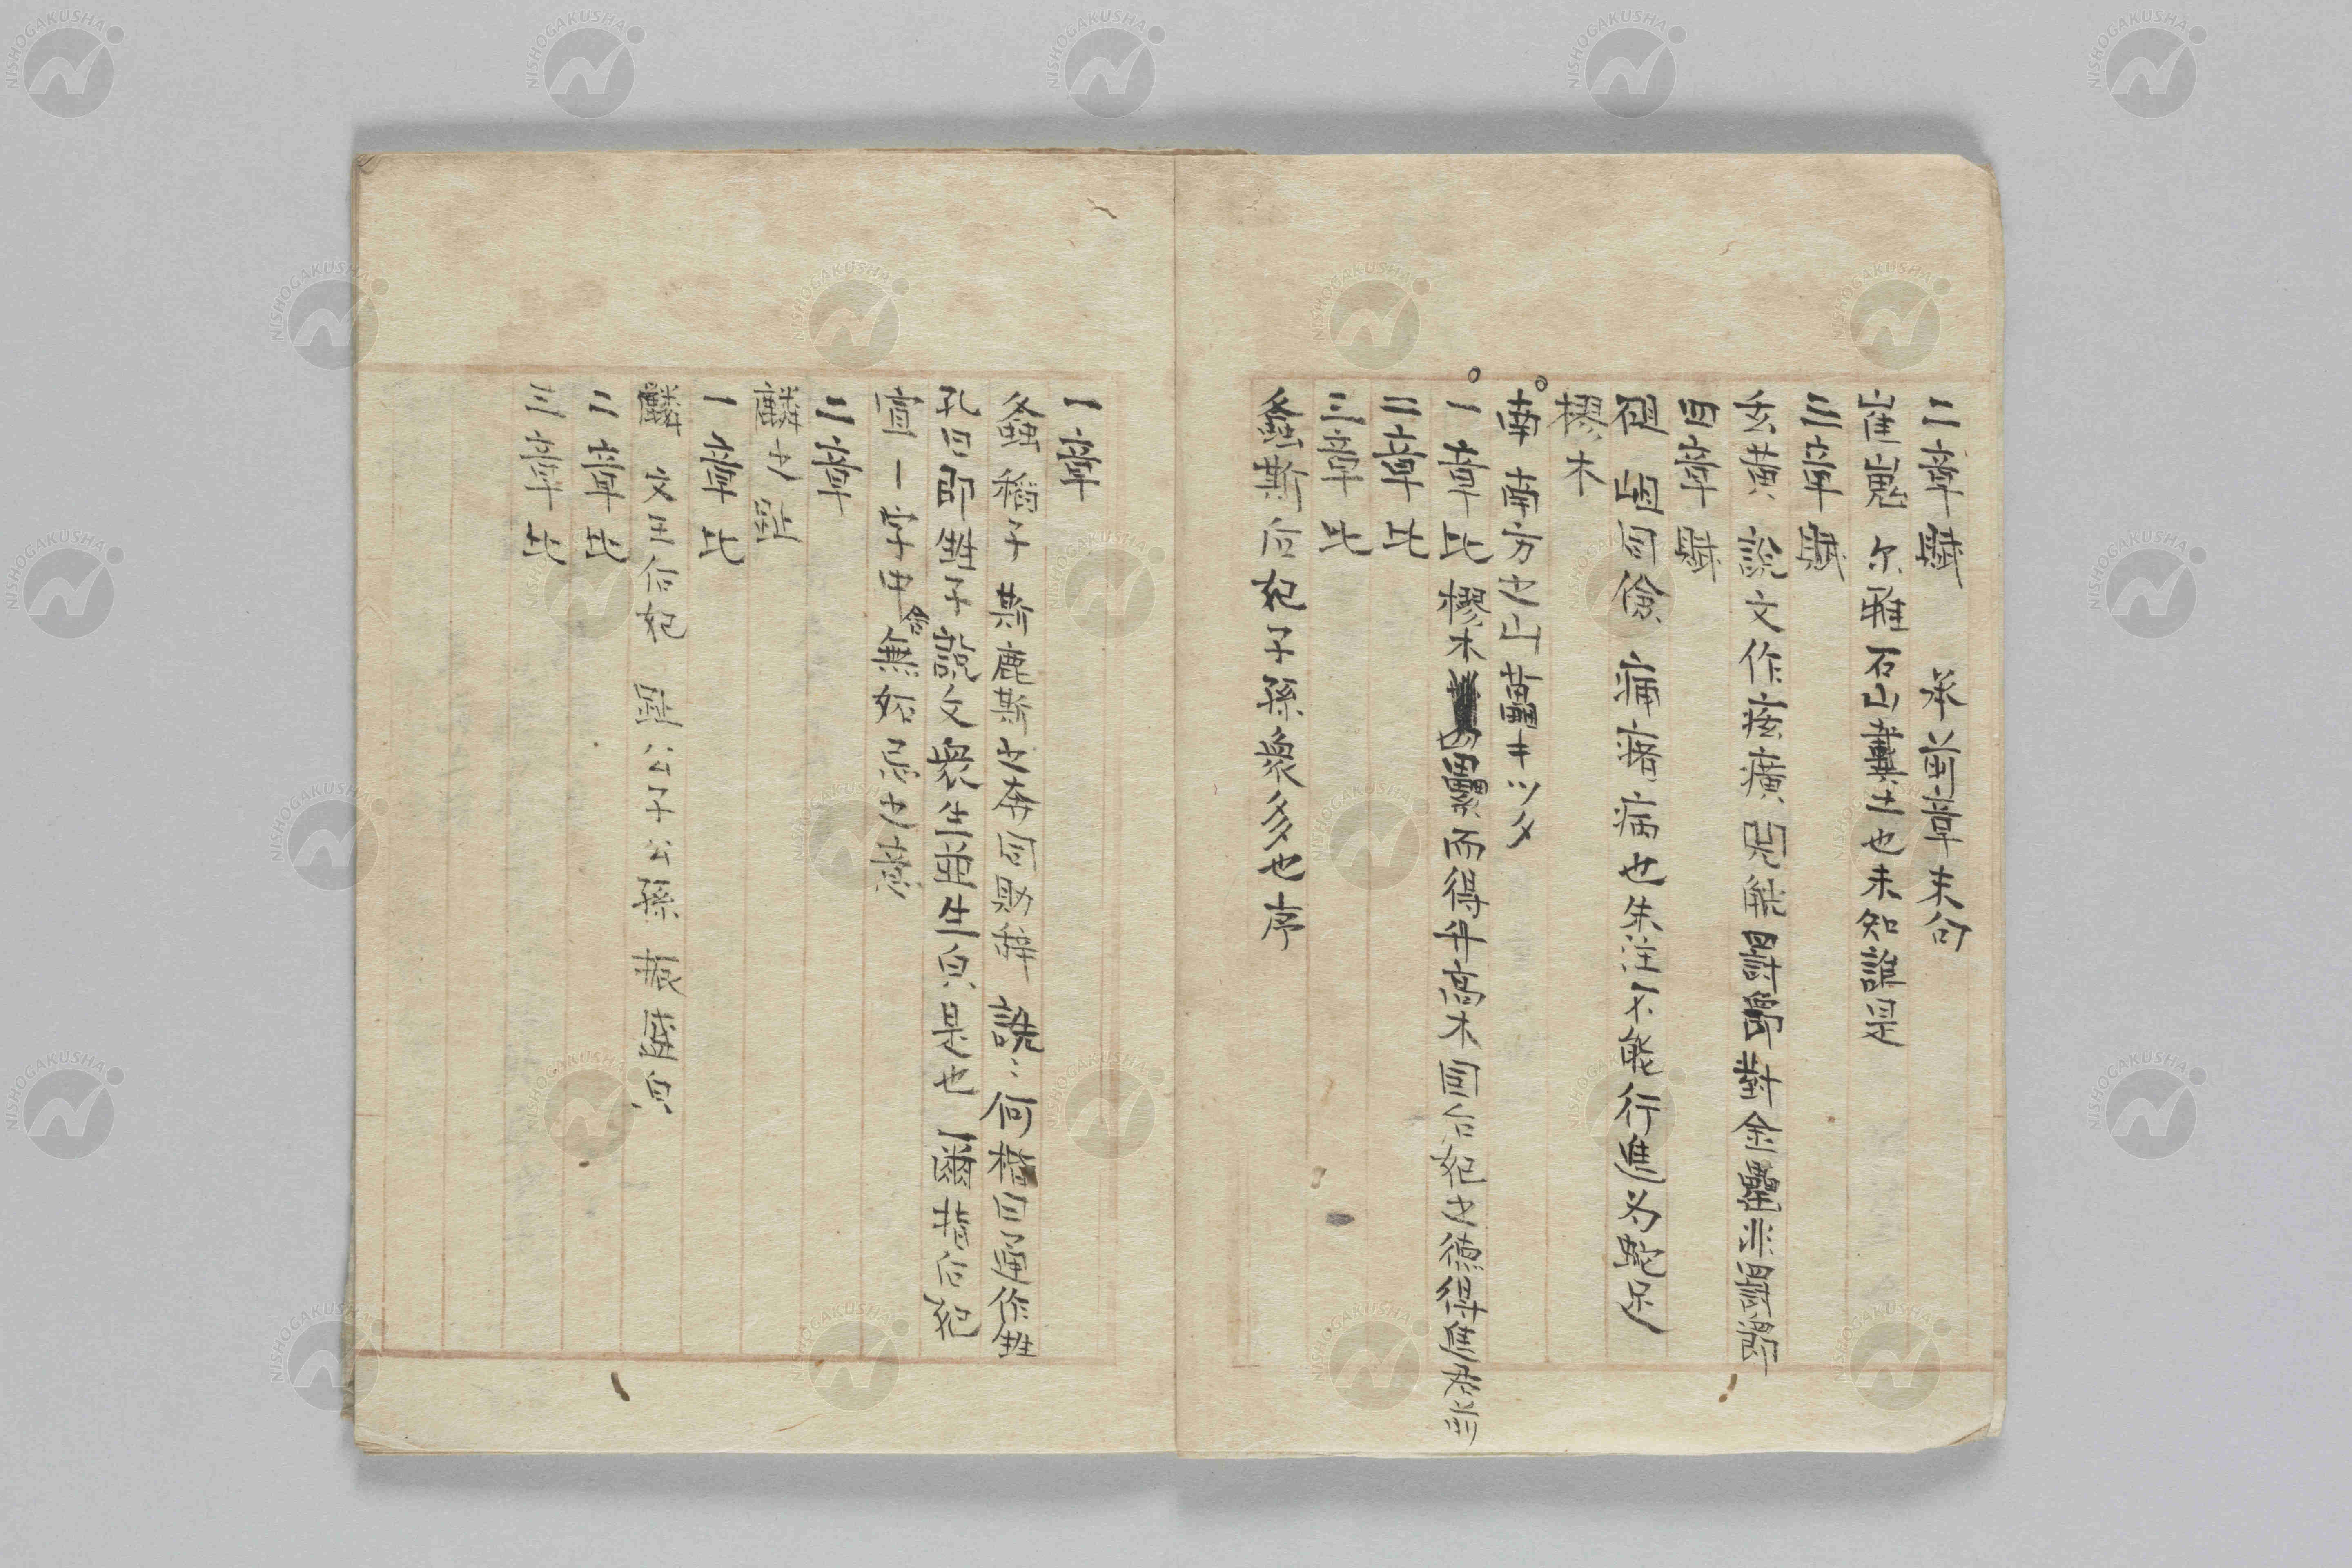 二章賦 承前章末句
崔嵬 尔雅石山戴土也未知誰是
三章賦
玄黄 説文作痃癀 兕觥罸爵對金罍非罸爵
四章賦
砠 岨同儉 痡瘏病也朱注不能行進為蛇足
樛木
南 南方之山 藟キツタ
一章比 樛木 藟纍而得升高木同后妃之德得進君前
二章比
三章比
螽斯 后妃子孫衆多也序
一章
螽 稲子 斯鹿斯之奔同助辞 詵〻何楷曰通作甡
孔曰即甡字 説文衆生並生皃是也 爾指后妃
宜一字中含無妬忌之意
二章
麟之趾
一章比
麟 文王后妃 趾公子公孫 振盛皃
二章比
三章比
NISHOGAKUSHA